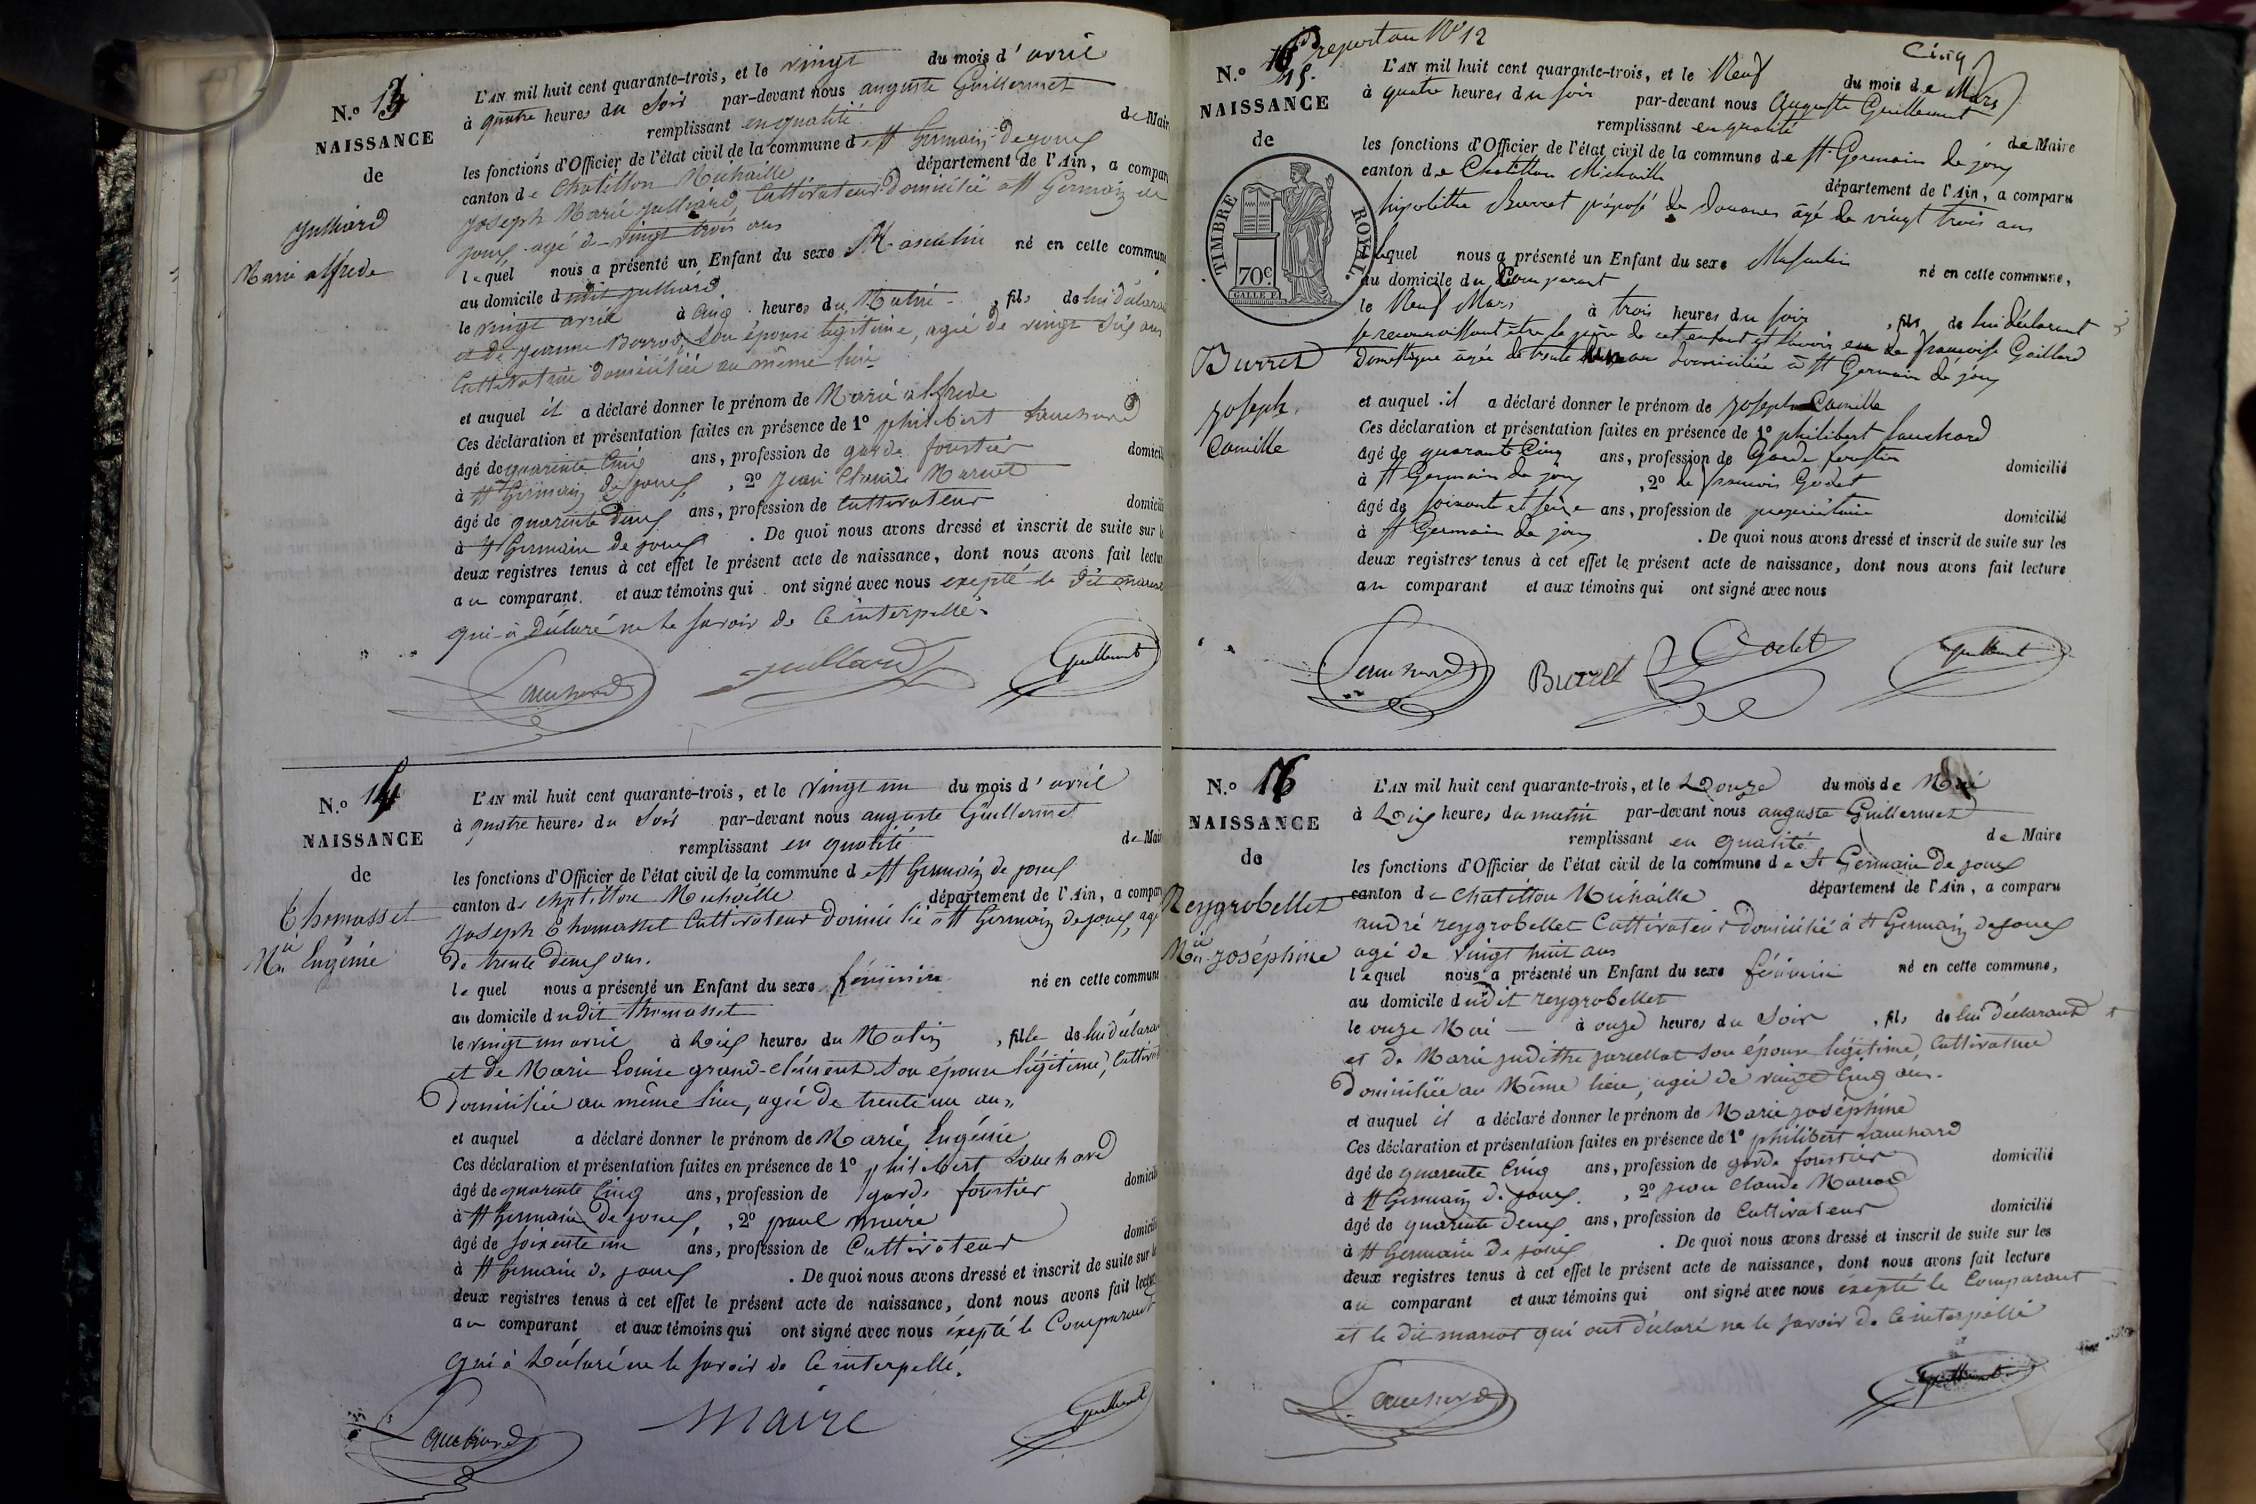 N.º 13
NAISSANCE
de
Julliard
Marie alfrede
L'AN mil huit cent quarante-trois, et le vingt du mois d'avril
à quatre heures du Soir par-devant nous auguste Guillermet
remplissant en qualité de Mair
les fonctions d'Officier de l'état civil de la commune de St Germain de joux
canton de Chatillon Michaille département de l'Ain, a compar
joseph Marie julliard, Cultivateur domicilié a St Germain de
joux agé de vingt trois ans
lequel nous a présenté un Enfant du sexe Masculin né en cette commune
au domicile dudit julliard
le vingt avril à Cinq heures du Matin, fils de lui déclara
et de jeanne Borrod, son épouse légitime, agée de vingt six ans
Cultivatrice domiciliée au même lieu
et auquel il a déclaré donner le prénom de Marie alfrede
Ces déclaration et présentation faites en présence de 1º philibert Lauchard
âgé de quarente Cinq ans, profession de garde forestier domicili
à St Germain de joux, 2º jean Claude Marient
âgé de quarente deux ans, profession de Cultivateur domicili
à St Germain de joux. De quoi nous avons dressé et inscrit de suite sur l
deux registres tenus à cet effet le présent acte de naissance, dont nous avons fait lectu
au comparant et aux témoins qui ont signé avec nous exepté le dit
qui à Déclaré ne le savoir de Ce interpellé.
Lauchard julliard Guillermet
N.º 14
NAISSANCE
de
Thomasset
Mie Eugénie
L'AN mil huit cent quarante-trois, et le vingt un du mois d'avril
à quatre heures du Soir par-devant nous auguste Guillermet
remplissant en qualité de Mair
les fonctions d'Officier de l'état civil de la commune de St Germain de joux
canton de Chatillon Michaille département de l'Ain, a compar
joseph Thomasset Cultivateur domicilié a St Germain de joux, agé
de trente deux ans.
lequel nous a présenté un Enfant du sexe féminin né en cette commune
au domicile dudit thomasset
le vingt un avril à Dix heures du Matin, fille de lui déclara
et de Marie Louise grand-clément son épouse légitime, Cultivat
Domiciliée au même lieu, agée de trente un ans
et auquel a déclaré donner le prénom de Marie Eugénie
Ces déclaration et présentation faites en présence de 1º philibert Lauchard
âgé de quarente Cinq ans, profession de garde forestier domicili
à St Germain de joux, 2º paul maire
âgé de soixente un ans, profession de Cultivateur domicili
à St Germain de joux. De quoi nous avons dressé et inscrit de suite sur le
deux registres tenus à cet effet le présent acte de naissance, dont nous avons fait lectur
au comparant et aux témoins qui ont signé avec nous éxepté le Comparant
qui à Déclaré ne le savoir de Ce interpellé.
Lauchard Maire Guillermet
report au Nº 12
N.º 15.
NAISSANCE
de
TIMBRE ROYAL.
70c
Burret
joseph
Camille
Cinq
L'AN mil huit cent quarante-trois, et le Neuf du mois de Mars
à quatre heures du soir par-devant nous Auguste Guillermet
remplissant en qualité de Maire
les fonctions d'Officier de l'état civil de la commune de St Germain de joux
canton de Chatillon Michaille département de l'Ain, a comparu
hipolithe Burret préposé de Douanes âgé de vingt trois ans
lequel nous a présenté un Enfant du sexe Masculin né en cette commune,
au domicile du Comparant
le Neuf Mars à trois heures du soir, fils de lui déclarant
se reconnaissant être le père de cet enfant et l'avoir eu de françoise Gaillard
Domestique âgée de trente un ans domiciliée à St Germain de joux
et auquel il a déclaré donner le prénom de joseph Camille
Ces déclaration et présentation faites en présence de 1º philibert Lauchard
âgé de quarante Cinq ans, profession de Garde forestier domicilié
à St Germain de joux, 2º de françois Godet
âgé de soixante et seize ans, profession de propriétaire domicilié
à St Germain de joux. De quoi nous avons dressé et inscrit de suite sur les
deux registres tenus à cet effet le présent acte de naissance, dont nous avons fait lecture
au comparant et aux témoins qui ont signé avec nous
Lauchard Burret Godet Guillermet
N.º 16
NAISSANCE
de
Reygrobellet
Mie joséphine
L'AN mil huit cent quarante-trois, et le Douze du mois de Mai
à Dix heures du matin par-devant nous auguste Guillermet
remplissant en qualité de Maire
les fonctions d'Officier de l'état civil de la commune de St Germain de joux
canton de Chatillon Michaille département de l'Ain, a comparu
andré reygrobellet Cultivateur domicilié à St Germain de joux
agé de vingt huit ans
lequel nous a présenté un Enfant du sexe féminin né en cette commune,
au domicile dudit reygrobellet
le onze Mai à onze heures du Soir, fils de lui Déclarant
et de Marie judithe jarcellat son épouse légitime, Cultivatrice
Domiciliée au Même lieu, agée de vingt Cinq ans.
et auquel il a déclaré donner le prénom de Marie joséphine
Ces déclaration et présentation faites en présence de 1º philibert Lauchard
âgé de quarente Cinq ans, profession de garde forestier domicilié
à St Germain de joux, 2º jean Claude Mariod
âgé de quarente deux ans, profession de Cultivateur domicilié
à St Germain de joux. De quoi nous avons dressé et inscrit de suite sur les
deux registres tenus à cet effet le présent acte de naissance, dont nous avons fait lecture
au comparant et aux témoins qui ont signé avec nous éxepté le Comparant
et le dit mariot qui ont déclaré ne le savoir de Ce interpellé
Lauchard Guillermet